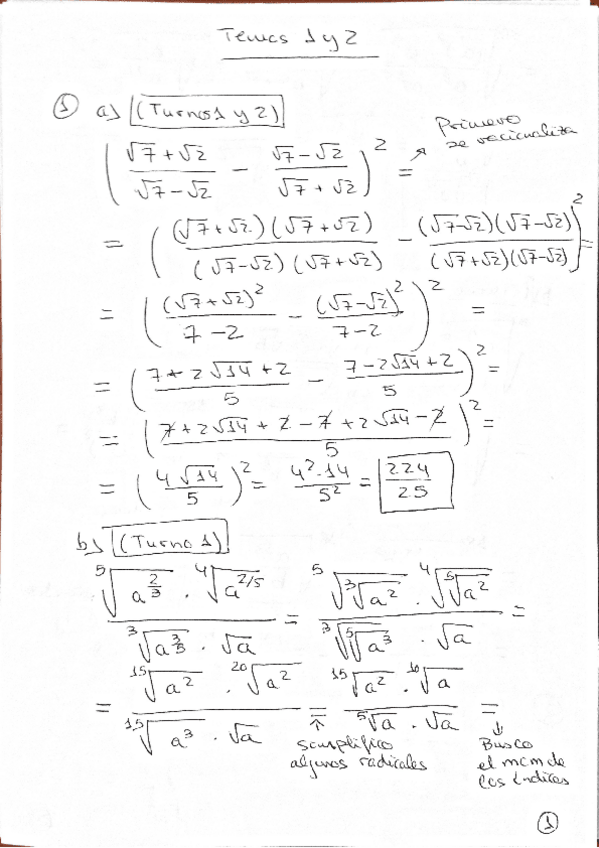 Temas 1 y 2
① a) (Turnos 1 y 2)
Primero
se racionaliza
((√7+√2)/(√7-√2) - (√7-√2)/(√7+√2))² =
= ((√7+√2)(√7+√2)/((√7-√2)(√7+√2)) - (√7-√2)(√7-√2)/((√7+√2)(√7-√2)))² =
= ((√7+√2)²/(7-2) - (√7-√2)²/(7-2))² =
= ((7+2√14+2)/5 - (7-2√14+2)/5)² =
= ((7+2√14+2-7+2√14-2)/5)² =
= (4√14/5)² = 4²·14/5² = 224/25
b) (Turno 1)
(⁵√(a^(2/3)) · ⁴√(a^(2/5)))/(³√(a^(3/5)) · √a) = (⁵√(³√a²) · ⁴√(⁵√a²))/(³√(⁵√a³) · √a) =
= (¹⁵√a² · ²⁰√a²)/(¹⁵√a³ · √a) = (¹⁵√a² · ¹⁰√a)/(⁵√a · √a) =
simplifico
algunos radicales
Busco
el mcm de
los índices
①